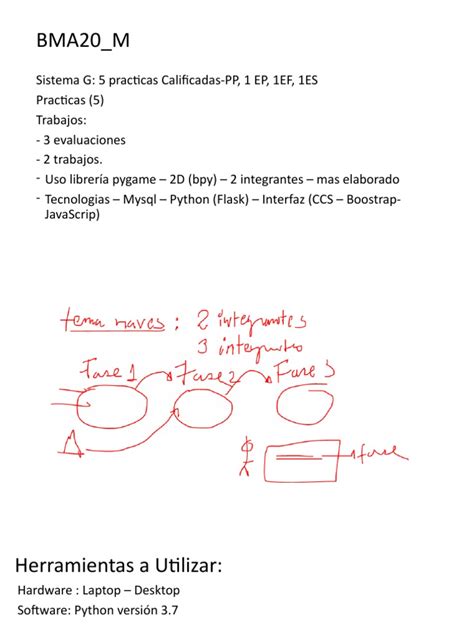 BMA20_M
Sistema G: 5 practicas Calificadas-PP, 1 EP, 1EF, 1ES
Practicas (5)
Trabajos:
- 3 evaluaciones
- 2 trabajos.
- Uso librería pygame – 2D (bpy) – 2 integrantes – mas elaborado
- Tecnologias – Mysql – Python (Flask) – Interfaz (CCS – Boostrap-
JavaScrip)
tema naves : 2 integrantes
3 integrantes
Fase 1 Fase 2 Fase 3
fase
Herramientas a Utilizar:
Hardware : Laptop – Desktop
Software: Python versión 3.7